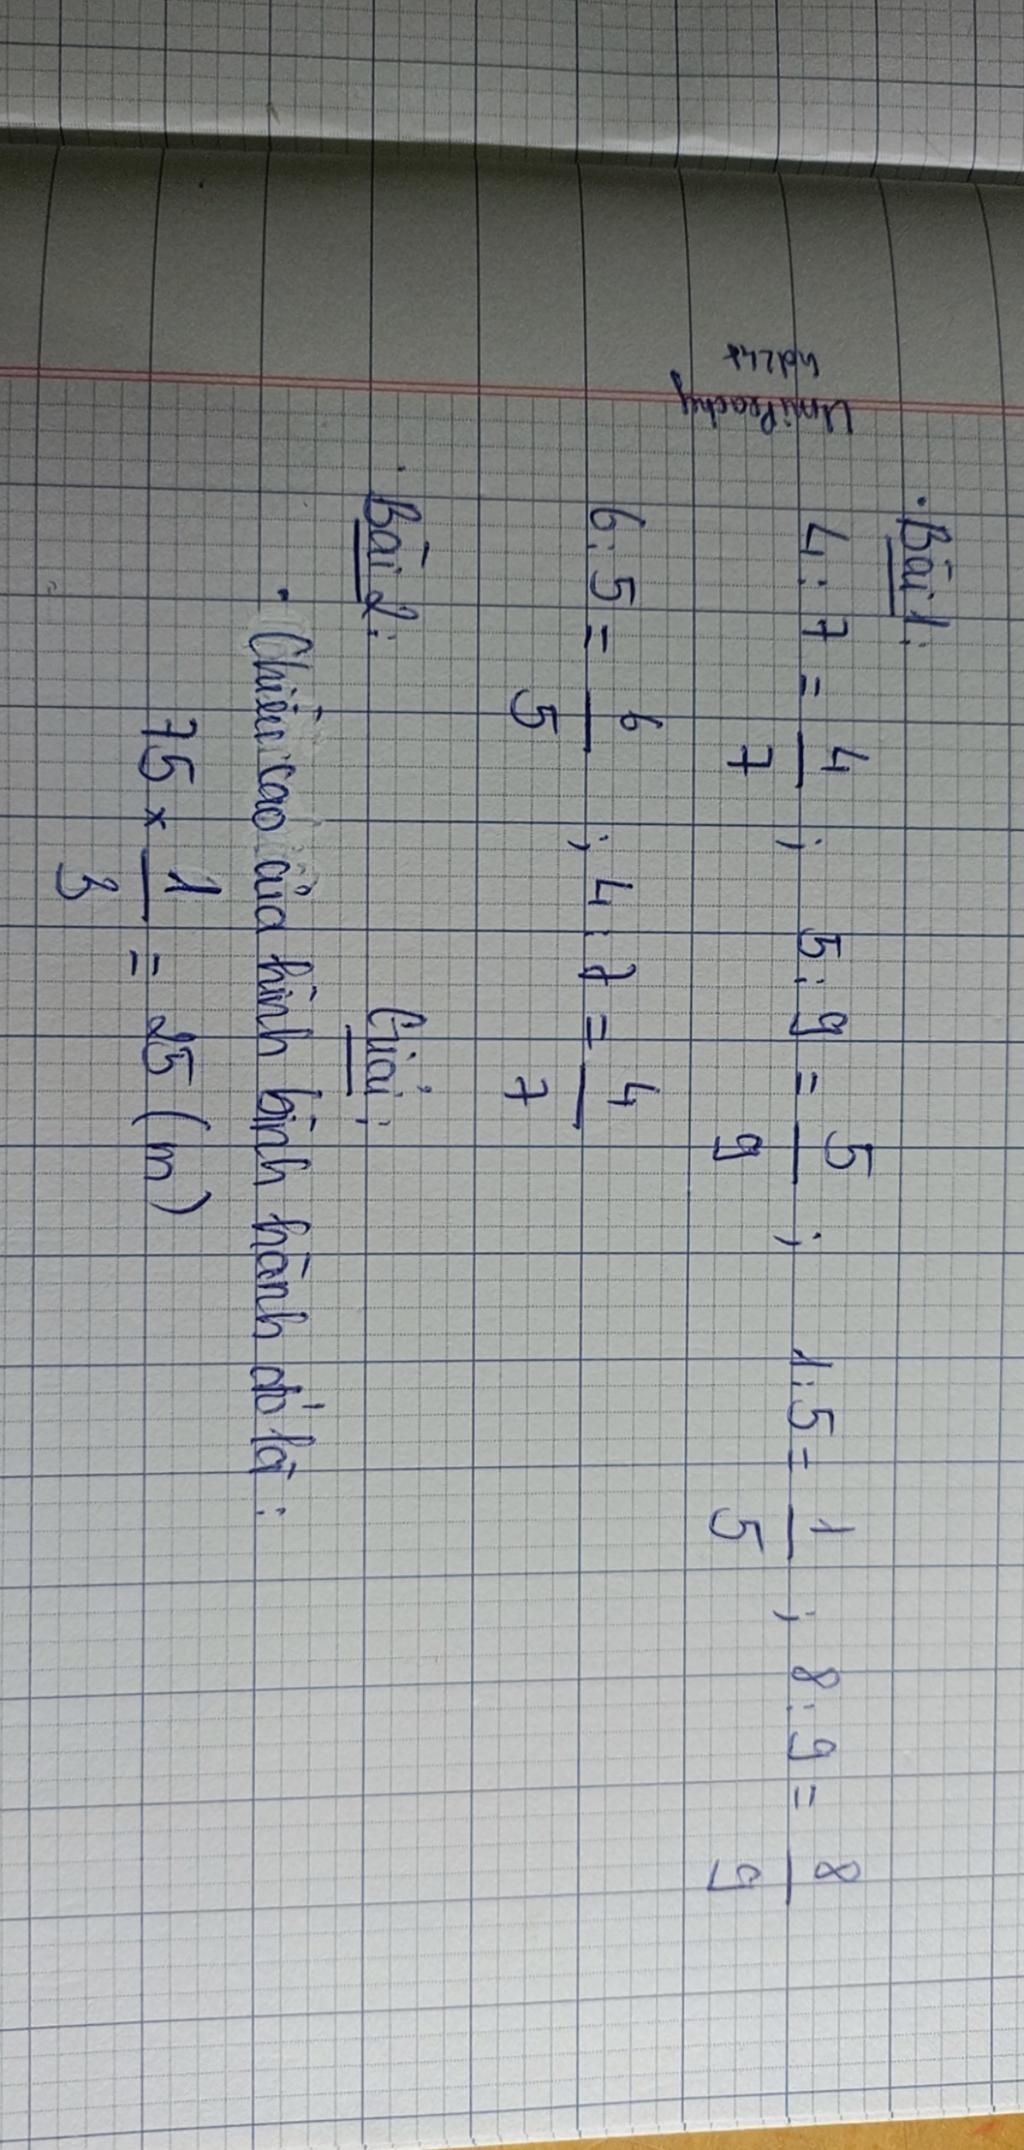 UmiPeachy
hd24*
Bài 1:
4 : 7 = 4/7 ; 5 : 9 = 5/9 ; 1 : 5 = 1/5 ; 8 : 9 = 8/9
6 : 5 = 6/5 ; 4 : 7 = 4/7
Bài 2:
Giải:
Chiều cao của hình bình hành đó là :
75 × 1/3 = 25 (m)